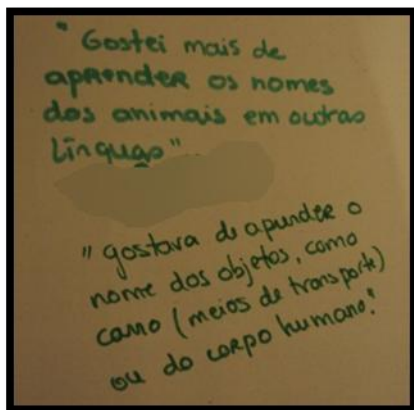 "Gostei mais de
aprender os nomes
dos animais em outras
línguas"
"gostava de aprender o
nome dos objetos, como
carro (meios de transporte)
ou do corpo humano."